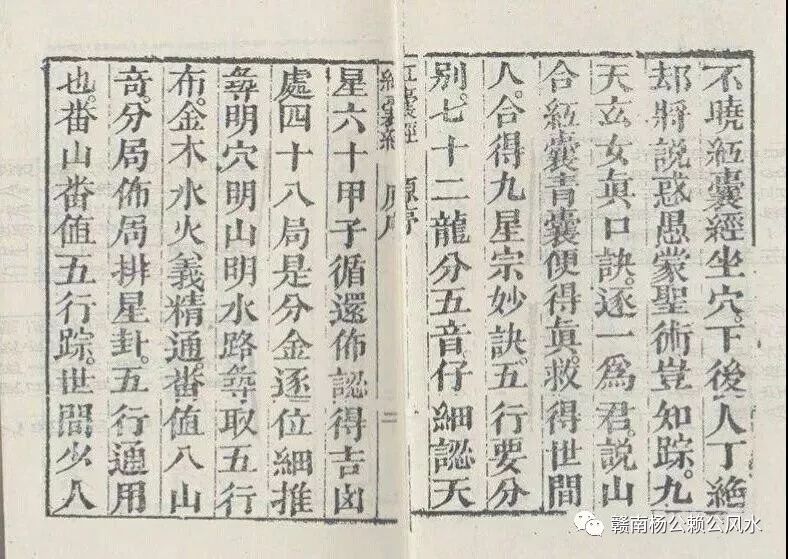 不曉紅囊經坐穴。下後人丁絶
却將說惑愚蒙聖術豈知踪。九
天玄女眞口訣。逐一爲君。說山
合紅囊青囊便得眞。救得世間
人。合得九星宗妙訣。五行要分
別。七十二龍分五音仔細認天
紅囊經 原序
紅囊經 原序 二
星六十甲子循還佈認得吉凶
處四十八局是分金逐位細推
尋明穴明山明水路尋取五行
布。金木水火義精通。番值八山
奇。分局佈局排星卦。五行通用
也。番山番值五行踪。世間少人
赣南杨公赖公风水